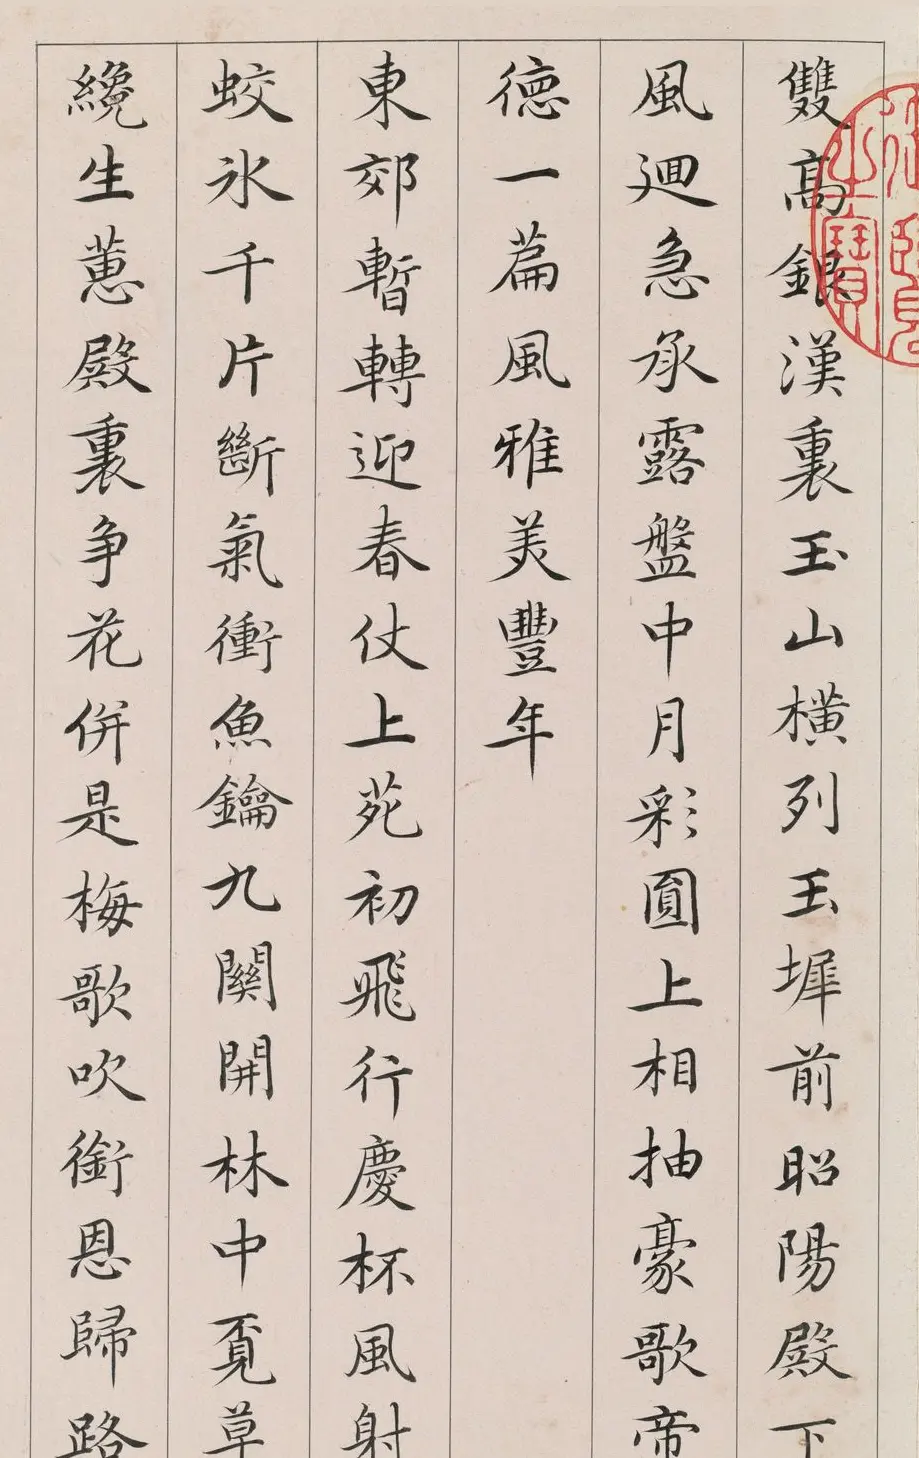 雙高銀漢裏玉山橫列玉墀前昭陽殿下
風迴急承露盤中月彩圓上相抽豪歌帝
德一篇風雅美豐年
東郊暫轉迎春仗上苑初飛行慶杯風射
蛟氷千片斷氣衝魚鑰九關開林中覔草
纔生蕙殿裏爭花併是梅歌吹銜恩歸路